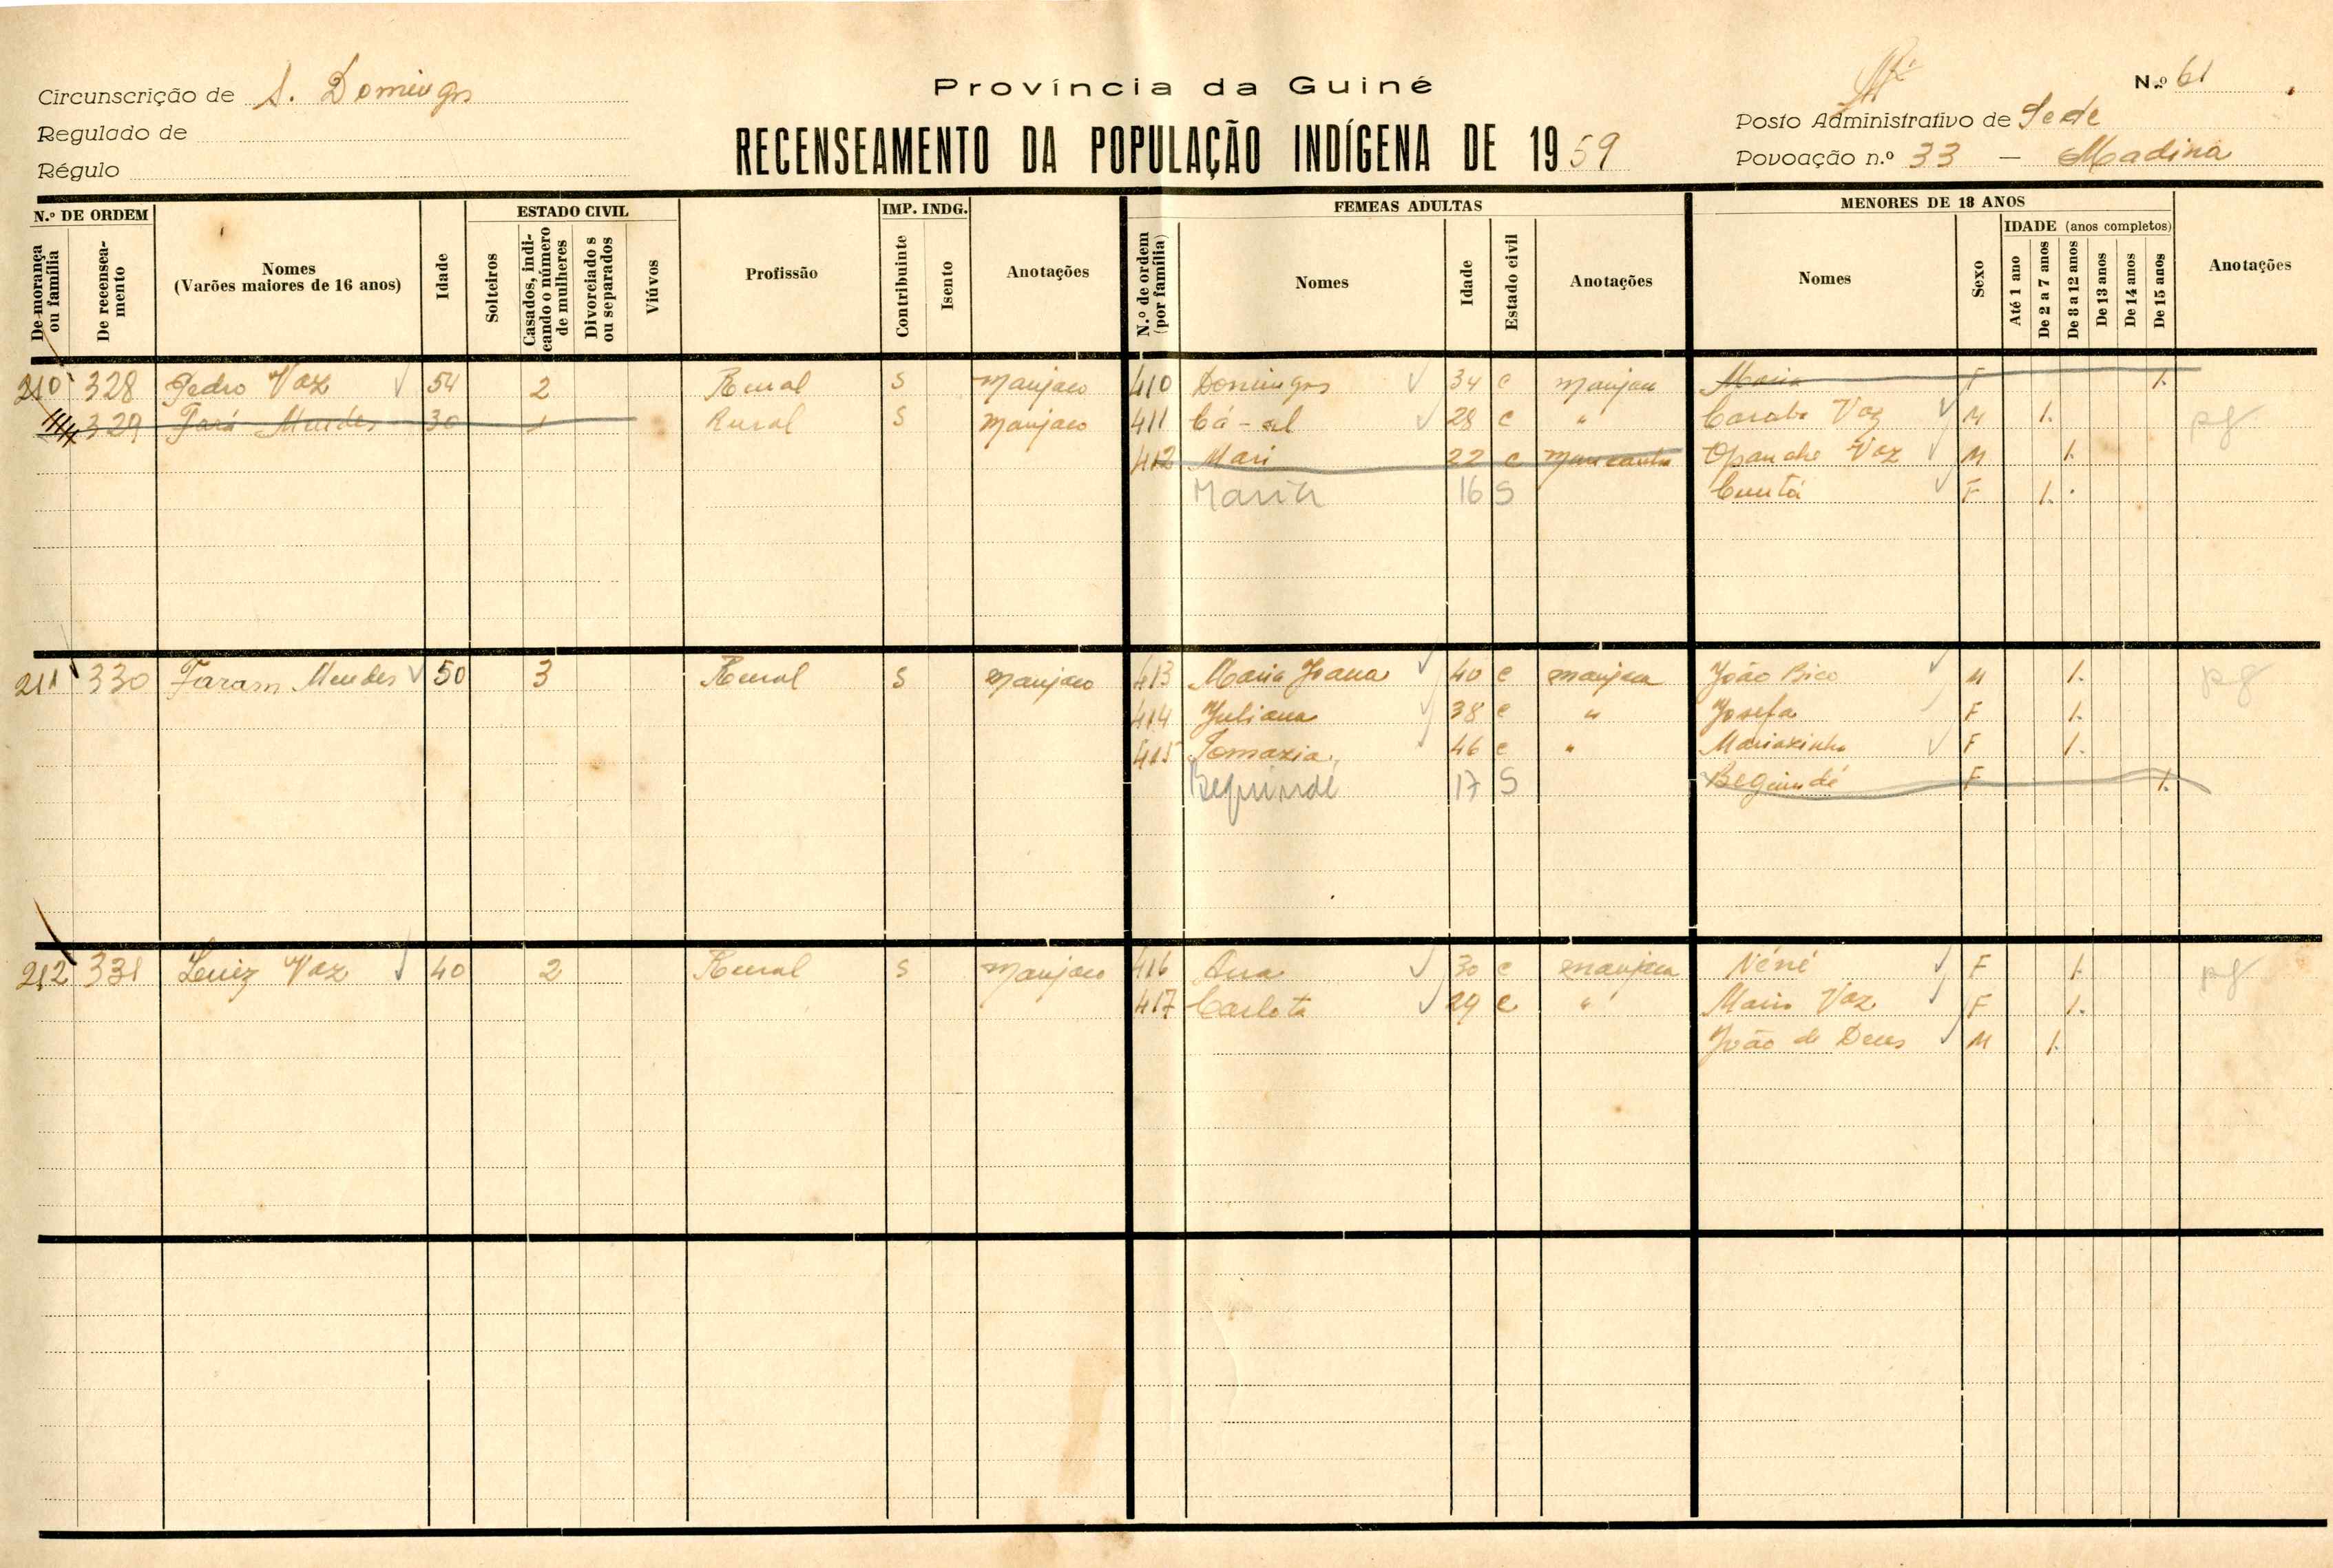 Província da Guiné
N.º 61
Circunscrição de S. Domingos
Posto Administrativo de Sede
Regulado de
RECENSEAMENTO DA POPULAÇÃO INDÍGENA DE 1959
Povoação n.º 33 — Madina
Régulo
N.º DE ORDEM
De morança ou família
De recenseamento
Nomes
(Varões maiores de 16 anos)
Idade
ESTADO CIVIL
Solteiros
Casados, indi-
cando o número
de mulheres
Divorciados
ou separados
Viúvos
Profissão
IMP. INDG.
Contribuinte
Isento
Anotações
FEMEAS ADULTAS
N.º de ordem
(por família)
Nomes
Idade
Estado civil
Anotações
MENORES DE 18 ANOS
Nomes
Sexo
IDADE (anos completos)
Até 1 ano
De 2 a 7 anos
De 8 a 12 anos
De 13 anos
De 14 anos
De 15 anos
Anotações
210 328 Pedro Vaz 54 2 Rural S Manjaco 410 Domingas 34 c Manjaca Maria F 1.
329 Fará Mendes 30 1 Rural S Manjaco 411 Cá-al 28 c " Vaz M 1. pg
412 Mari 22 c Mancanha Vaz M 1.
Maria 16 S F 1.
211 330 Faram Mendes 50 3 Rural S Manjaco 413 Maria Joana 40 c Manjaca João Bico M 1. pg
414 Juliana 38 c " Josefa F 1.
415 Tomazia 46 c " Mariazinha F 1.
Beguindé 17 S Beguindé F 1.
212 331 Luiz Vaz 40 2 Rural S Manjaco 416 Ana 30 c Manjaca Néné F 1. pg
417 Carlota 29 c " Maria Vaz F 1.
João de Deus M 1.